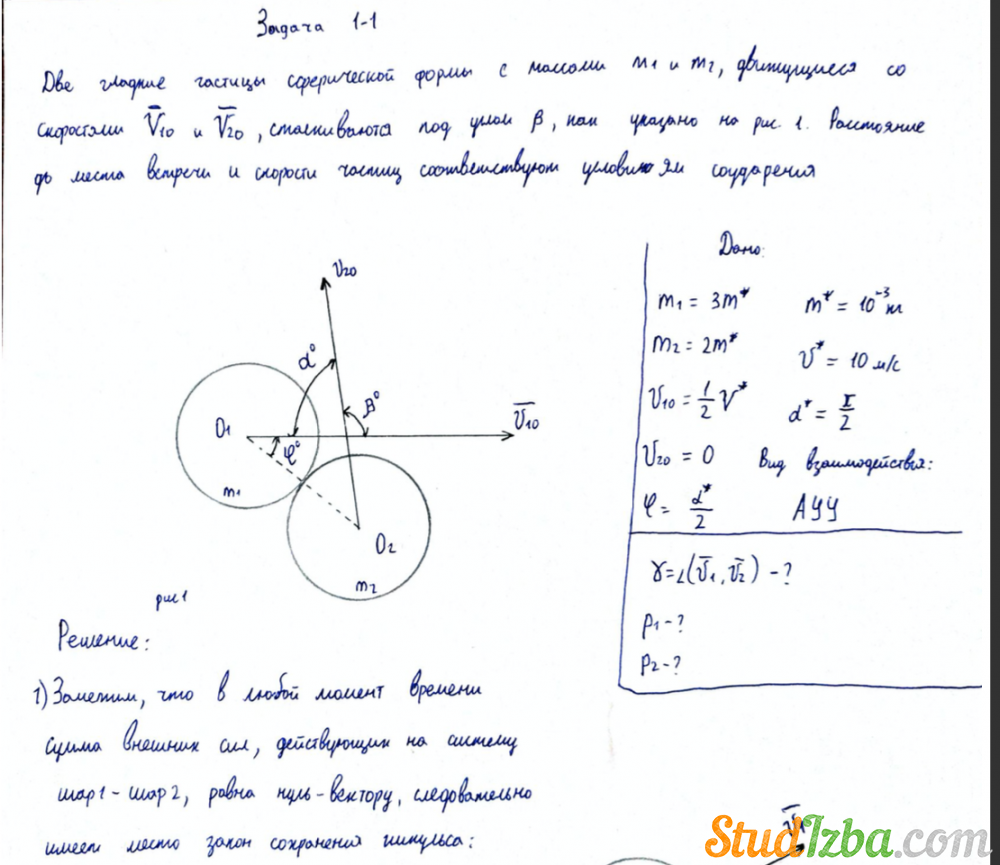 Задача 1-1
Две гладкие частицы сферической формы с массами m1 и m2, движущиеся со
скоростями V̅10 и V̅20, сталкиваются под углом β, как указано на рис. 1. Расстояние
до места встречи и скорости частиц соответствуют условиям соударения
V20
α°
β°
V̅10
O1
φ°
m1
O2
m2
рис1
Дано:
m1 = 3m*
m* = 10⁻³ кг
m2 = 2m*
v* = 10 м/с
V10 = 1/2 V*
α* = π/2
V20 = 0
Вид взаимодействия:
φ = α*/2
АУУ
γ=∠(v̅1, v̅2) - ?
p1 - ?
p2 - ?
Решение:
1) Заметим, что в любой момент времени
сумма внешних сил, действующих на систему
шар1 - шар2, равна нуль-вектору, следовательно
имеет место закон сохранения импульса:
StudIzba.com